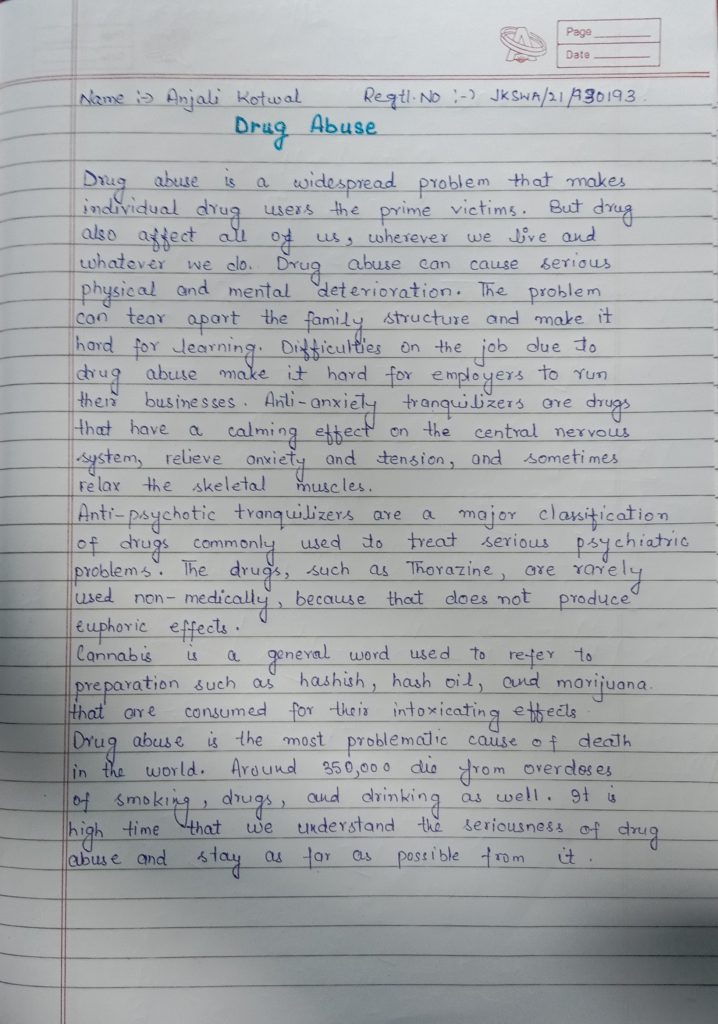 Page
Date
Name :-> Anjali Kotwal Regtl. No :-) JKSWA/21/930193.
Drug Abuse
Drug abuse is a widespread problem that makes
individual drug users the prime victims. But drug
also affect all of us, wherever we live and
whatever we do. Drug abuse can cause serious
physical and mental deterioration. The problem
can tear apart the family structure and make it
hard for learning. Difficulties on the job due to
drug abuse make it hard for employers to run
their businesses. Anti-anxiety tranquilizers are drugs
that have a calming effect on the central nervous
system, relieve anxiety and tension, and sometimes
relax the skeletal muscles.
Anti-psychotic tranquilizers are a major classification
of drugs commonly used to treat serious psychiatric
problems. The drugs, such as Thorazine, are rarely
used non-medically, because that does not produce
euphoric effects.
Cannabis is a general word used to refer to
preparation such as hashish, hash oil, and marijuana.
that are consumed for their intoxicating effects.
Drug abuse is the most problematic cause of death
in the world. Around 350,000 die from overdoses
of smoking, drugs, and drinking as well. It is
high time that we understand the seriousness of drug
abuse and stay as far as possible from it.